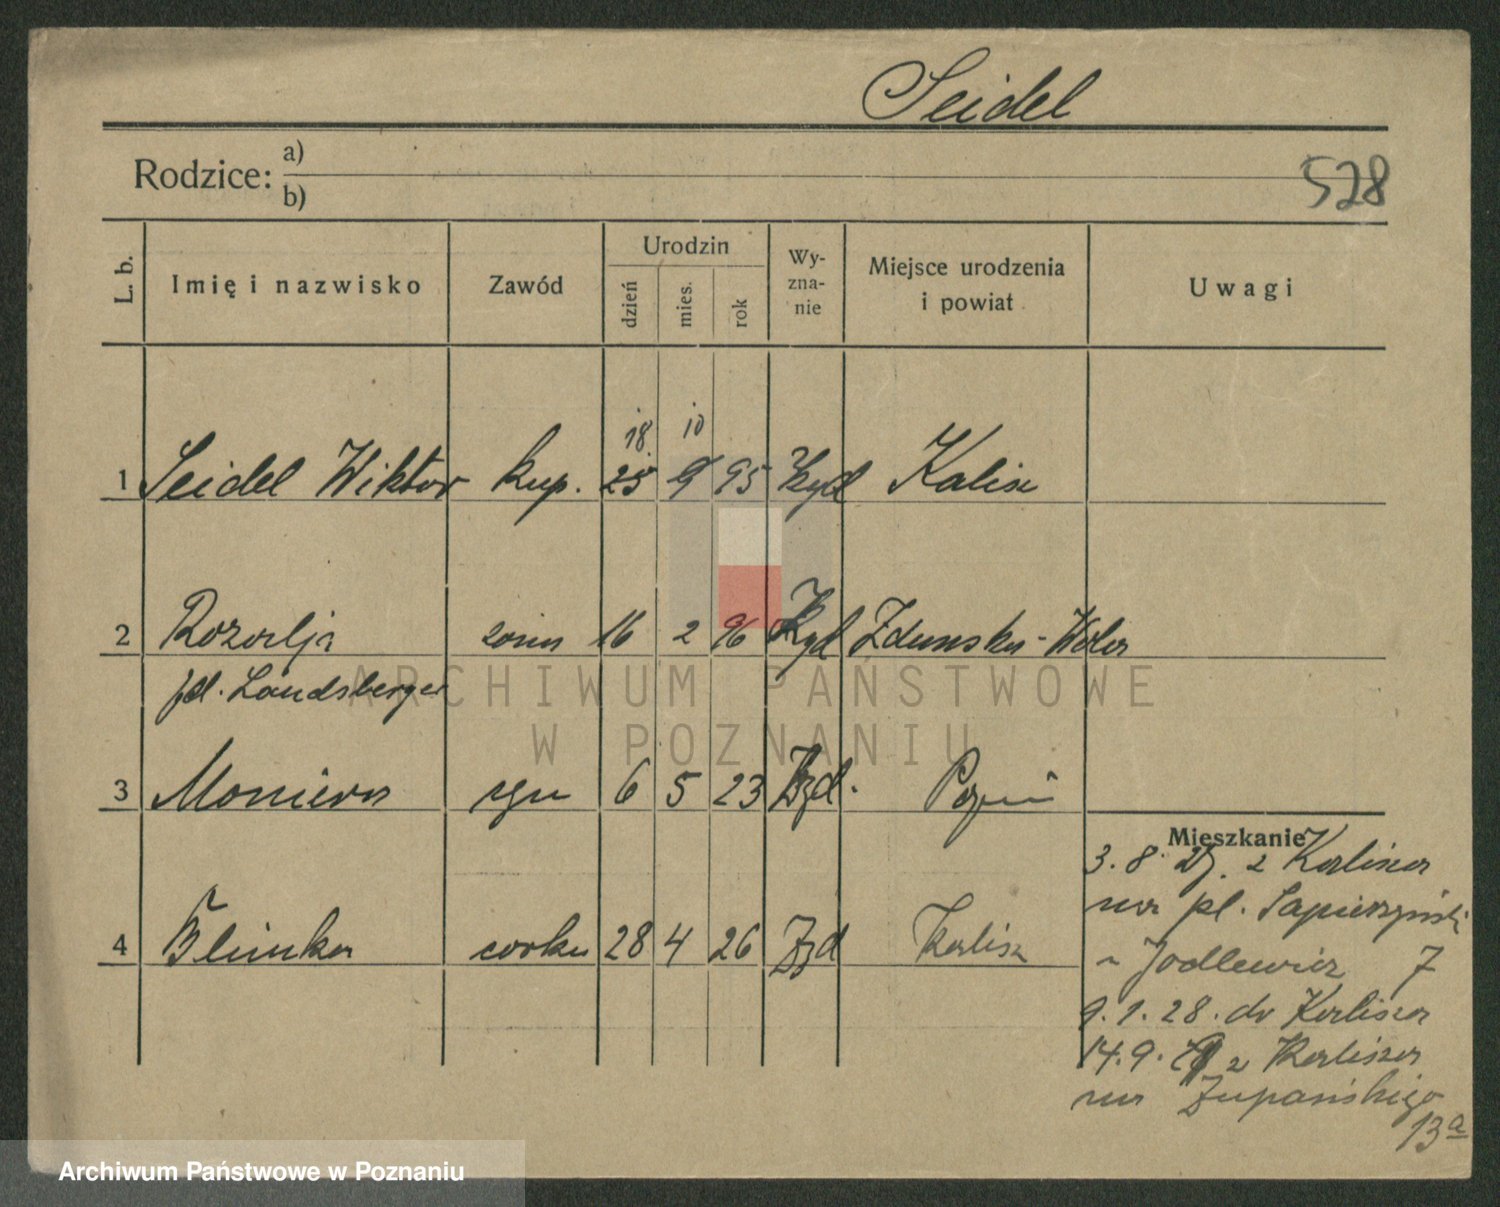 Seidel
Rodzice: a)
b)
528
L. b. Imię i nazwisko Zawód Urodzin dzień mies. rok Wy-zna-nie Miejsce urodzenia i powiat Uwagi
18 10
1 Seidel Wiktor kup. 25 9 95 Żyd Kalisz
2 Rozalja żona 16 2 96 Żyd Zduńska-Wola
pd. Landsberger
3 Moniera syn 6 5 23 Żyd. Pozn
Mieszkanie
3. 8. 27. z Kalisza
na pl. Sapieżyński
Jodlewicz 7
4 Blimka córka 28 4 26 Żyd Kalisz
9. 1. 28. do Kalisza
14. 9. z Kalisza
na Żupańskiego
13a
ARCHIWUM PAŃSTWOWE
W POZNANIU
Archiwum Państwowe w Poznaniu